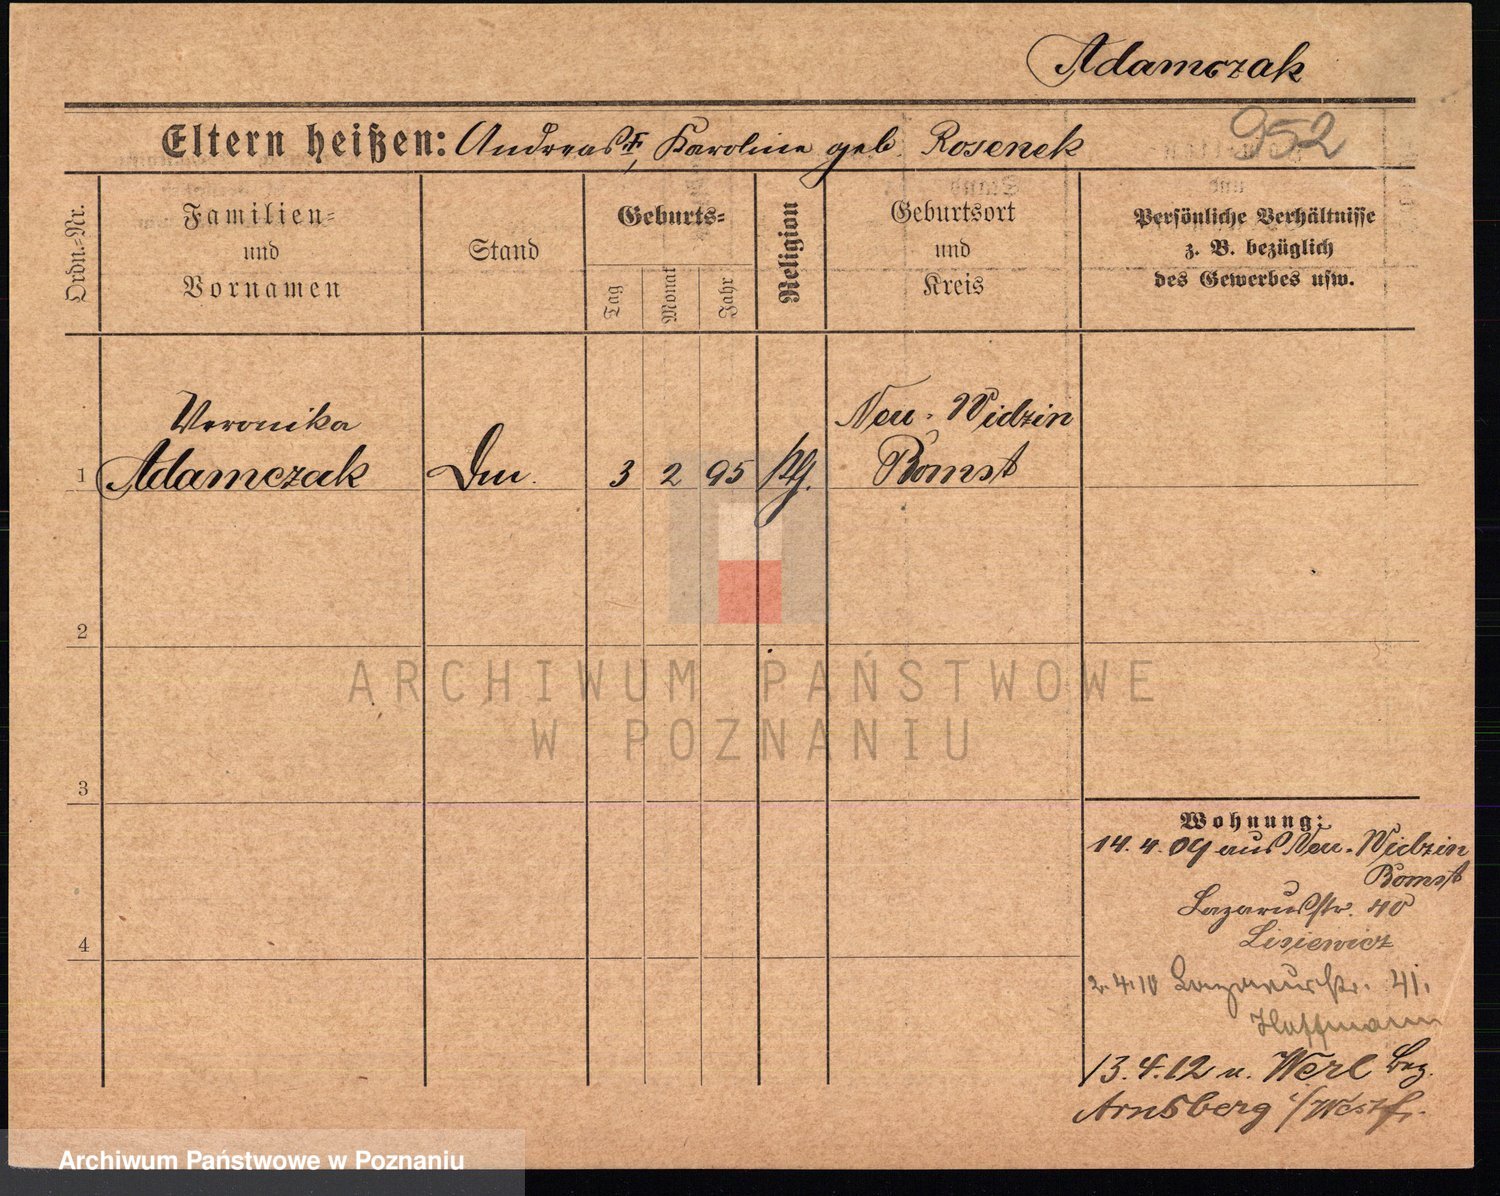 Adamczak
952
Eltern heißen: Andreas †, Karoline geb. Rosenek
Ordn.-Nr.
Familien-
und
Vornamen
Stand
Geburts-
Tag
Monat
Jahr
Religion
Geburtsort
und
Kreis
Persönliche Verhältnisse
z. B. bezüglich
des Gewerbes usw.
Veronika
Neu-Widzin
1 Adamczak Dm. 3 2 95 kth. Bomst
2
3
4
Wohnung:
14.4.09 aus Neu-Widzin
Bomst
Lazarusstr. 40
Lisiewicz
2.4.10 Lazarusstr. 41.
Hoffmann
13.4.12 n. Werl Bez.
Arnsberg i/Westf.
ARCHIWUM PAŃSTWOWE
W POZNANIU
Archiwum Państwowe w Poznaniu